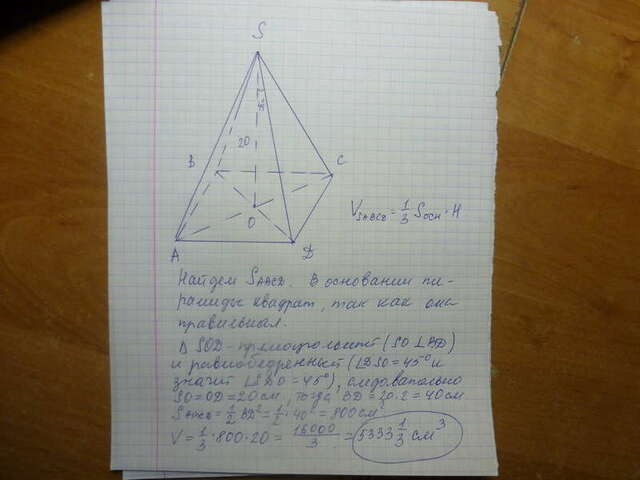 S
20
B
C
O
A
D
V SABCD = 1/3 Sосн · H
Найдем SABCD. В основании пи-
рамиды квадрат, так как она
правильная.
Δ SOD - прямоугольный (SO ⊥ BD)
и равнобедренный (∠DSO = 45° и
значит ∠SDO = 45°), следовательно
SO = OD = 20 см, тогда BD = 20 · 2 = 40 см
SABCD = 1/2 BD² = 1/2 · 40² = 800 см
V = 1/3 · 800 · 20 = 16000/3 = 5333 1/3 см³